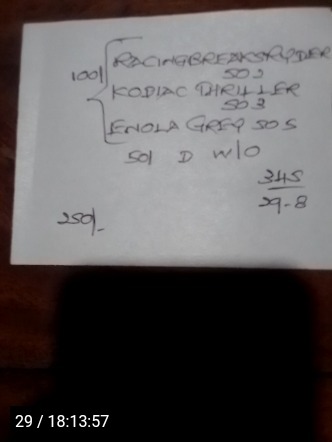 RACINGBREAKSRYDER
502
100/
KODIAC THRILLER
503
ENOLA GREY 505
50/ D W/O
345
29-8
250/-
29 / 18:13:57